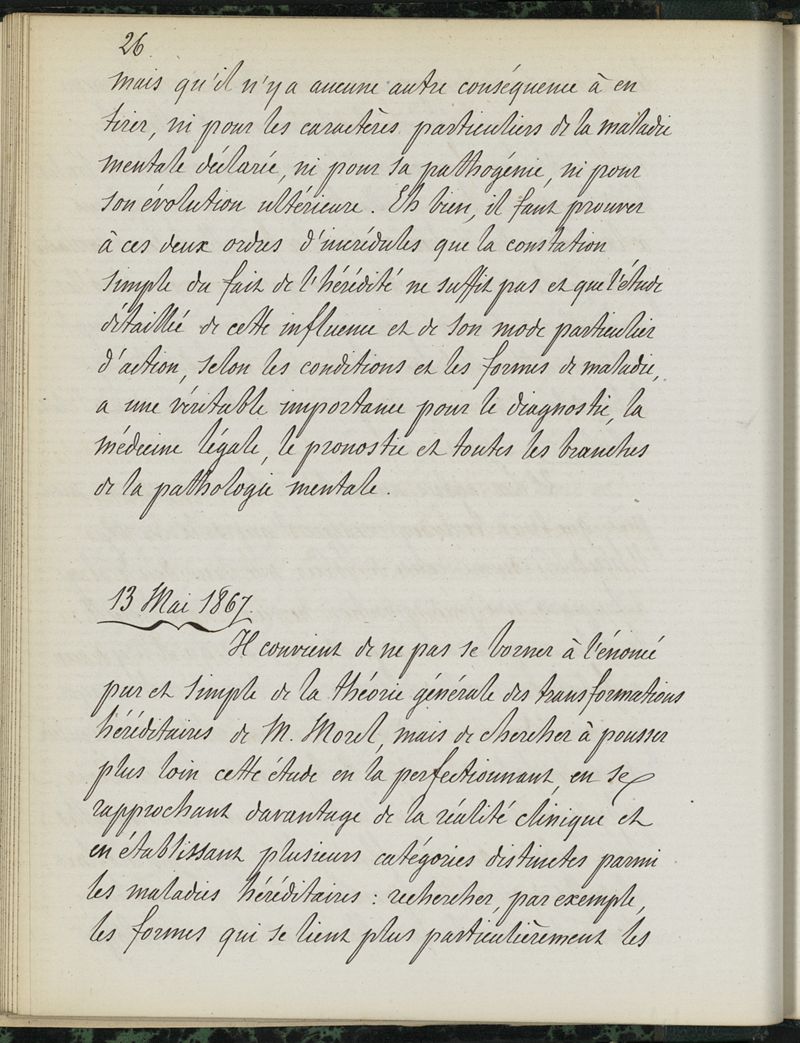 26
mais qu'il n'y a aucune autre conséquence à en
tirer, ni pour les caractères particuliers de la maladie
mentale déclarée, ni pour sa pathogénie, ni pour
son évolution ultérieure. Eh bien, il faut prouver
à ces deux ordres d'incrédules que la constation
simple du fait de l'hérédité ne suffit pas et que l'étude
détaillée de cette influence et de son mode particulier
d'action, selon les conditions et les formes de maladie,
a une véritable importance pour le diagnostic, la
médecine légale, le pronostic et toutes les branches
de la pathologie mentale.
13 Mai 1867.
Il convient de ne pas se borner à l'énoncé
pur et simple de la théorie générale des transformations
héréditaires de M. Morel, mais de chercher à pousser
plus loin cette étude en la perfectionnant, en se
rapprochant davantage de la réalité clinique et
en établissant plusieurs catégories distinctes parmi
les maladies héréditaires : rechercher, par exemple,
les formes qui se lient plus particulièrement les